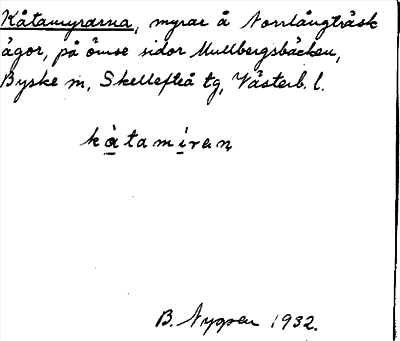 Kåtamyrarna, myrar å Norrlångträsk
ägor, på ömse sidor Mullbergsbäcken,
Byske sn, Skellefteå tg, Västerb. l.
kàtamíran
B. Nygren 1932.